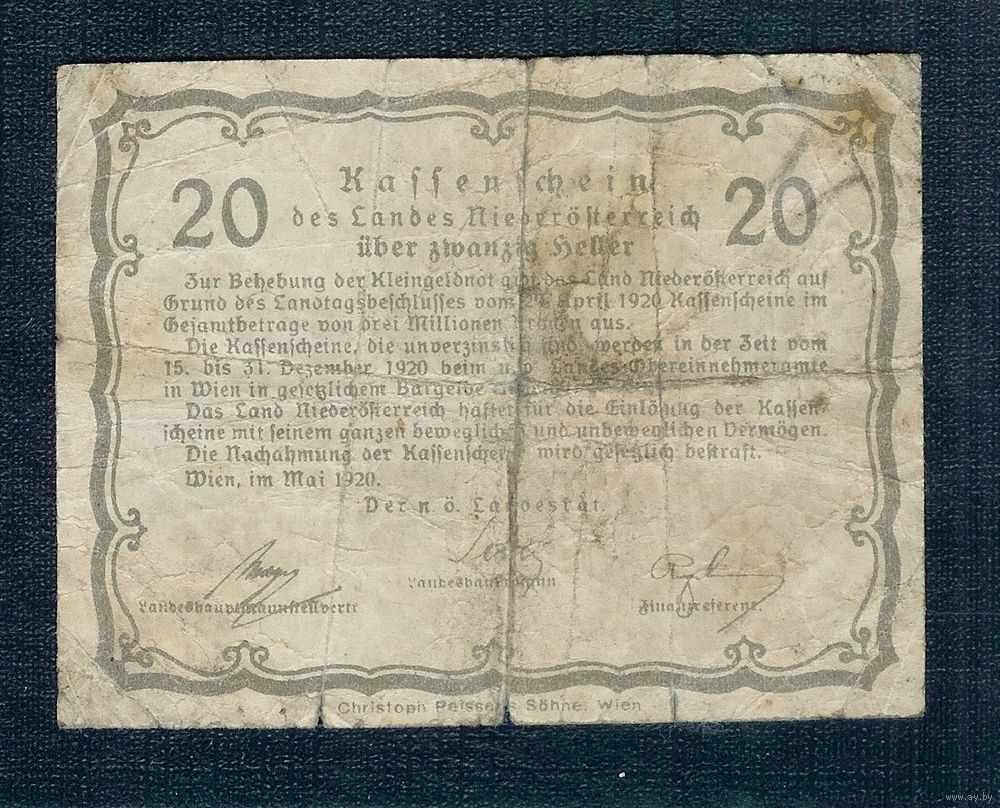 Kassenschein
20 des Landes Niederösterreich 20
über zwanzig Heller
Zur Behebung der Kleingeldnot gibt das Land Niederösterreich auf
Grund des Landtagsbeschlusses vom April 1920 Kassenscheine im
Gesamtbetrage von drei Millionen Kronen aus.
Die Kassenscheine, die unverzinslich sind, werden in der Zeit vom
15. bis 31. Dezember 1920 beim n. ö. Landes-Obereinnehmeramte
in Wien in gesetzlichem Bargelde
Das Land Niederösterreich haftet für die Einlösung der Kassen-
scheine mit seinem ganzen beweglichen und unbeweglichen Vermögen.
Die Nachahmung der Kassenscheine wird gesetzlich bestraft.
Wien, im Mai 1920.
Der n. ö. Landesrat.
Landeshauptmann
Landeshauptmannstellvertr. Finanzreferent.
Christoph Reisser's Söhne, Wien
www.ay.by